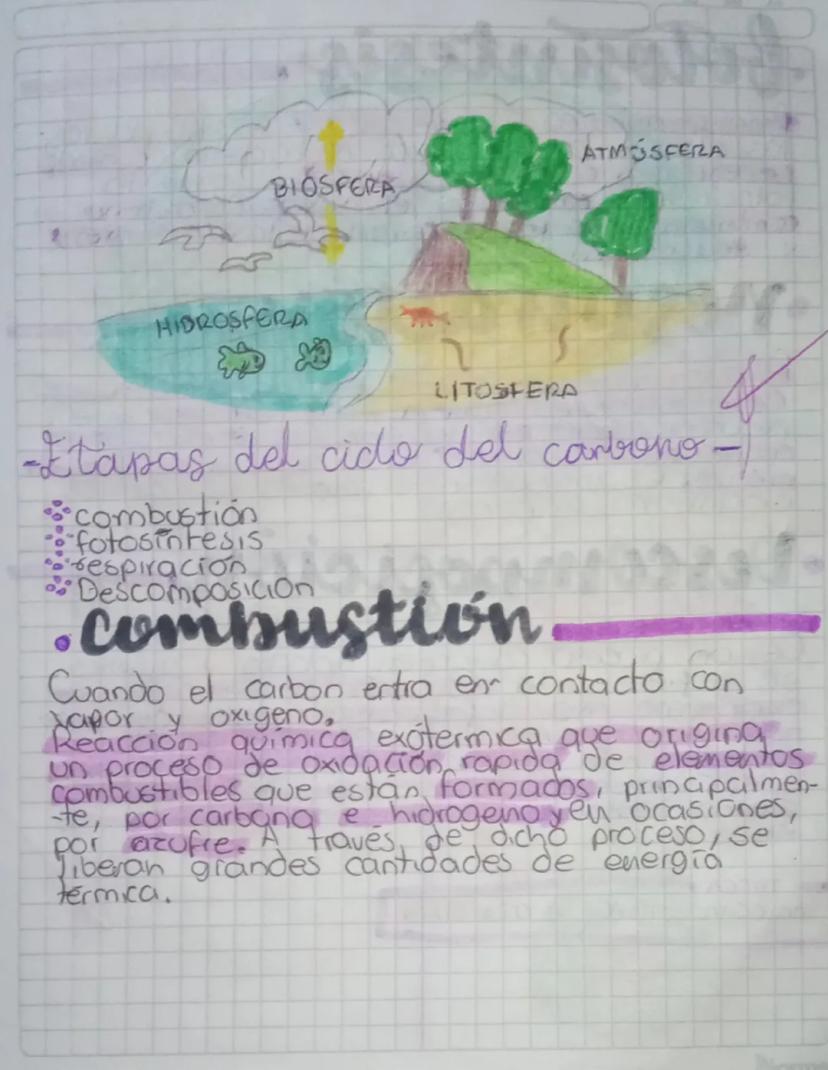 BIÓSFERA
ATMÓSFERA
HIDROSFERA
LITOSFERA
-Etapas del ciclo del carbono-
combustión
fotosíntesis
respiración
Descomposición
• combustión
Cuando el carbon entra en contacto con
vapor y oxigeno.
Reacción química exótermica que origina
un proceso de oxidación rapida de elementos
combustibles que están formados, principalmen-
-te, por carbono e hidrogeno y en ocasiones,
por azufre. A través de dicho proceso, se
liberan grandes cantidades de energía
térmica.